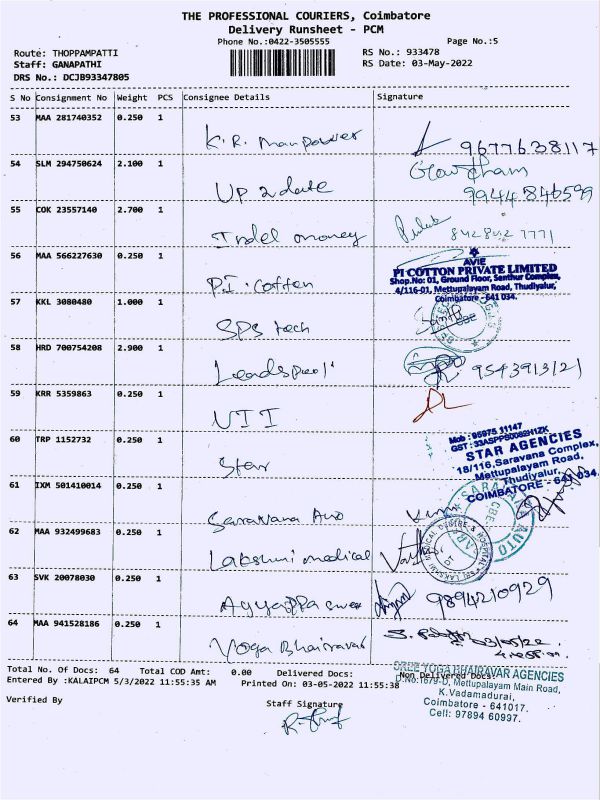 THE PROFESSIONAL COURIERS, Coimbatore
Delivery Runsheet - PCM
Phone No.:0422-3505555 Page No.:5
Route: THOPPAMPATTI RS No.: 933478
Staff: GANAPATHI RS Date: 03-May-2022
DRS No.: DCJB93347805
S No Consignment No Weight PCS Consignee Details Signature
53 MAA 281740352 0.250 1
K.R. manpower 9677638117
54 SLM 294750624 2.100 1 Gowtham
UP 2 date 9944846599
55 COK 23557140 2.700 1
Indel money 842842 7771
56 MAA 566227630 0.250 1 AVIE
P.I. Cotten PI COTTON PRIVATE LIMITED
Shop.No: 01, Ground Floor, Senthur Complex,
4/116-01, Mettupalayam Road, Thudiyalur,
Coimbatore - 641 034.
57 KKL 3080480 1.000 1
SPS tech
58 HRD 700754208 2.900 1
9543913121
59 KRR 5359863 0.250 1
UTI
60 TRP 1152732 0.250 1 Mob : 95975 11147
Star STAR AGENCIES
18/116, Saravana Complex,
Mettupalayam Road,
Thudiyalur,
COIMBATORE - 641 034.
61 IXM 501410014 0.250 1
Saravana Auto
62 MAA 932499683 0.250 1
Lakshmi medical
63 SVK 20078030 0.250 1
Ayyappa 9894210929
64 MAA 941528186 0.250 1
Yoga Bhairavar 03/05/22
Total No. Of Docs: 64 Total COD Amt: 0.00 Delivered Docs: Non Delivered Docs:
Entered By :KALAIPCM 5/3/2022 11:55:35 AM Printed On: 03-05-2022 11:55:38
SREE YOGA BHAIRAVAR AGENCIES
D.No:1679-D, Mettupalayam Main Road,
K.Vadamadurai,
Coimbatore - 641017.
Cell: 97894 60997.
Verified By Staff Signature